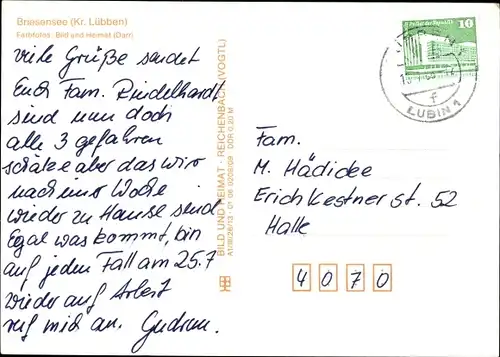 Briesensee (Kr. Lübben)
Farbfotos: Bild und Heimat (Darr)
viele Grüße sendet
Euch Fam. Rindelhardt
sind nun doch
alle 3 gefahren
schätze aber das wir
nach eine Woche
wieder zu Hause sind
Egal was kommt, bin
auf jeden Fall am 25.7
wieder auf Arbeit
ruf mich an. Gudrun.
BILD UND HEIMAT · REICHENBACH (VOGTL)
A1/III/26/13 · 01 06 0208/09 DDR 0,20 M
10
LÜBBEN 1
f
Fam.
M. Hädicke
Erich Kestner st. 52
Halle
4 0 7 0